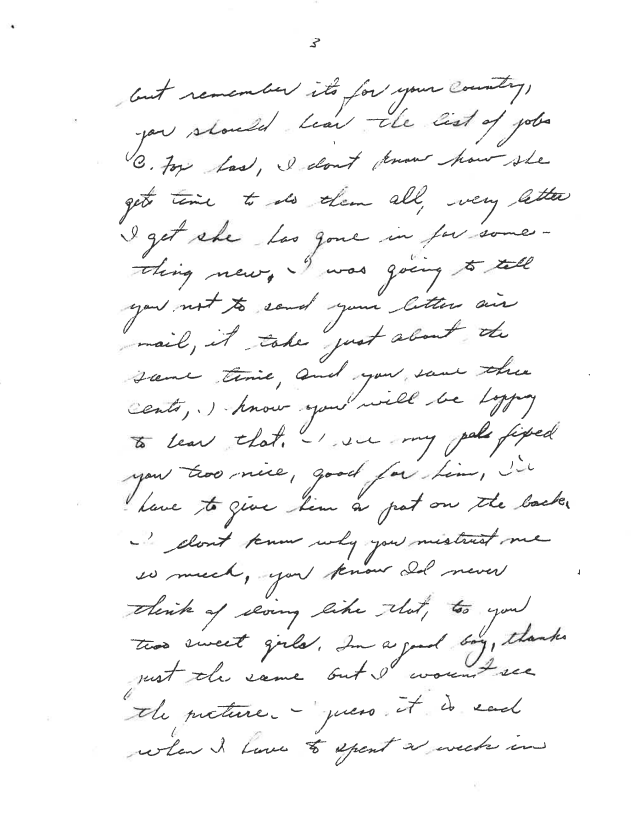 3
but remember its for your country,
you should hear the list of jobs
C. Fox has, I dont know how she
gets time to do them all, very letter
I get she has gone in for some-
thing new, I was going to tell
you not to send your letter air
mail, it takes just about the
same time, and you save three
cents, I know you will be happy
to hear that. - I see my pals fixed
you two nice, good for him, I'll
have to give him a pat on the back.
- I dont know why you mistrust me
so much, you know Id never
think of doing like that, to you
two sweet girls. Im a good boy, thanks
just the same but I wouldn't see
the picture. - guess it is sad
when I have to spent a week in